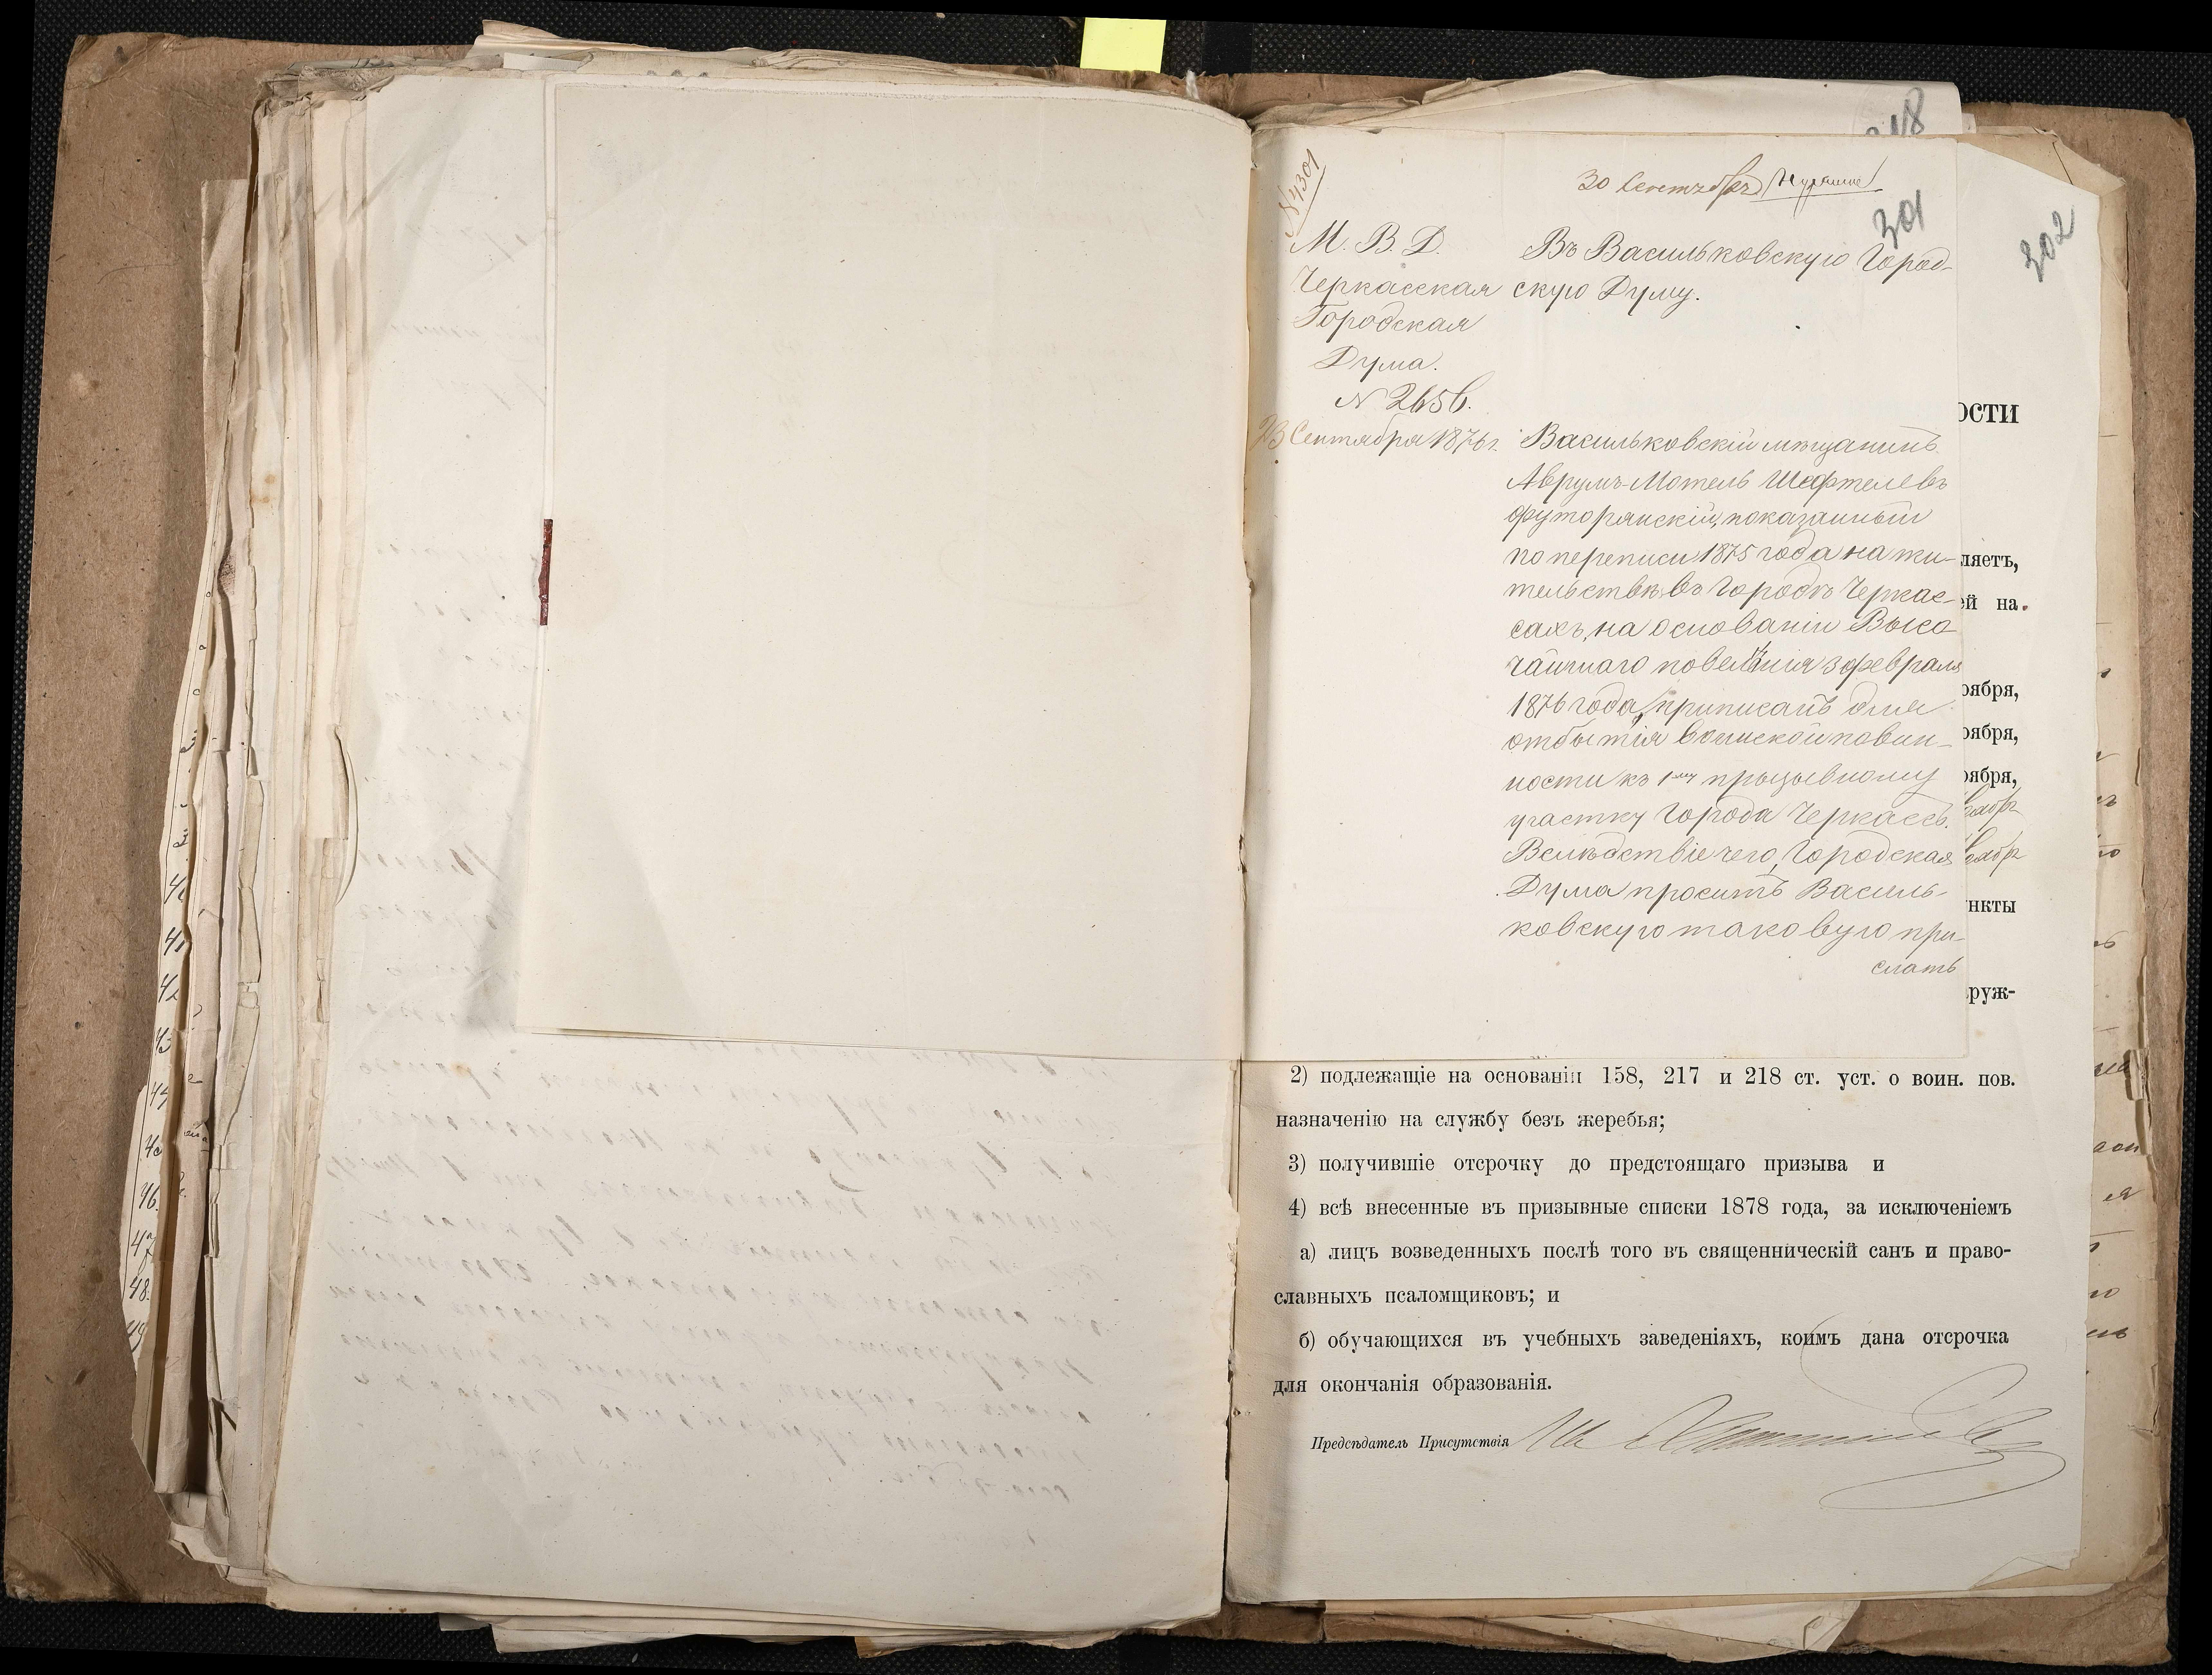 № 4301
30 Сентября
301
М. В. Д.
Черкасская
Городская
Дума.
№ 2656.
23 Сентября 1876 г.
Въ Васильковскую Город-
скую Думу.
Васильковскій мѣщанинъ
Аврумъ-Мотель Шефтелевъ
Футорянскій, показанный
по переписи 1875 года на жи-
тельствѣ въ Городѣ Черкас-
сахъ, на основаніи Высо
чайшаго повелѣнія 3 февраля
1876 года, приписанъ для
отбытія воинской повин-
ности къ 1му призывному
участку Города Черкассъ.
Вслѣдствіе чего, Городская
Дума проситъ Василь-
ковскую таковую при-
слать
302
ости
ляетъ,
ей на.
оября,
оября,
оября,
нкты
руж-
2) подлежащіе на основаніи 158, 217 и 218 ст. уст. о воин. пов.
назначенію на службу безъ жеребья;
3) получившіе отсрочку до предстоящаго призыва и
4) всѣ внесенные въ призывные списки 1878 года, за исключеніемъ
а) лицъ возведенныхъ послѣ того въ священническій санъ и право-
славныхъ псаломщиковъ; и
б) обучающихся въ учебныхъ заведеніяхъ, коимъ дана отсрочка
для окончанія образованія.
Предсѣдатель Присутствія
41
42
43
46.
48.